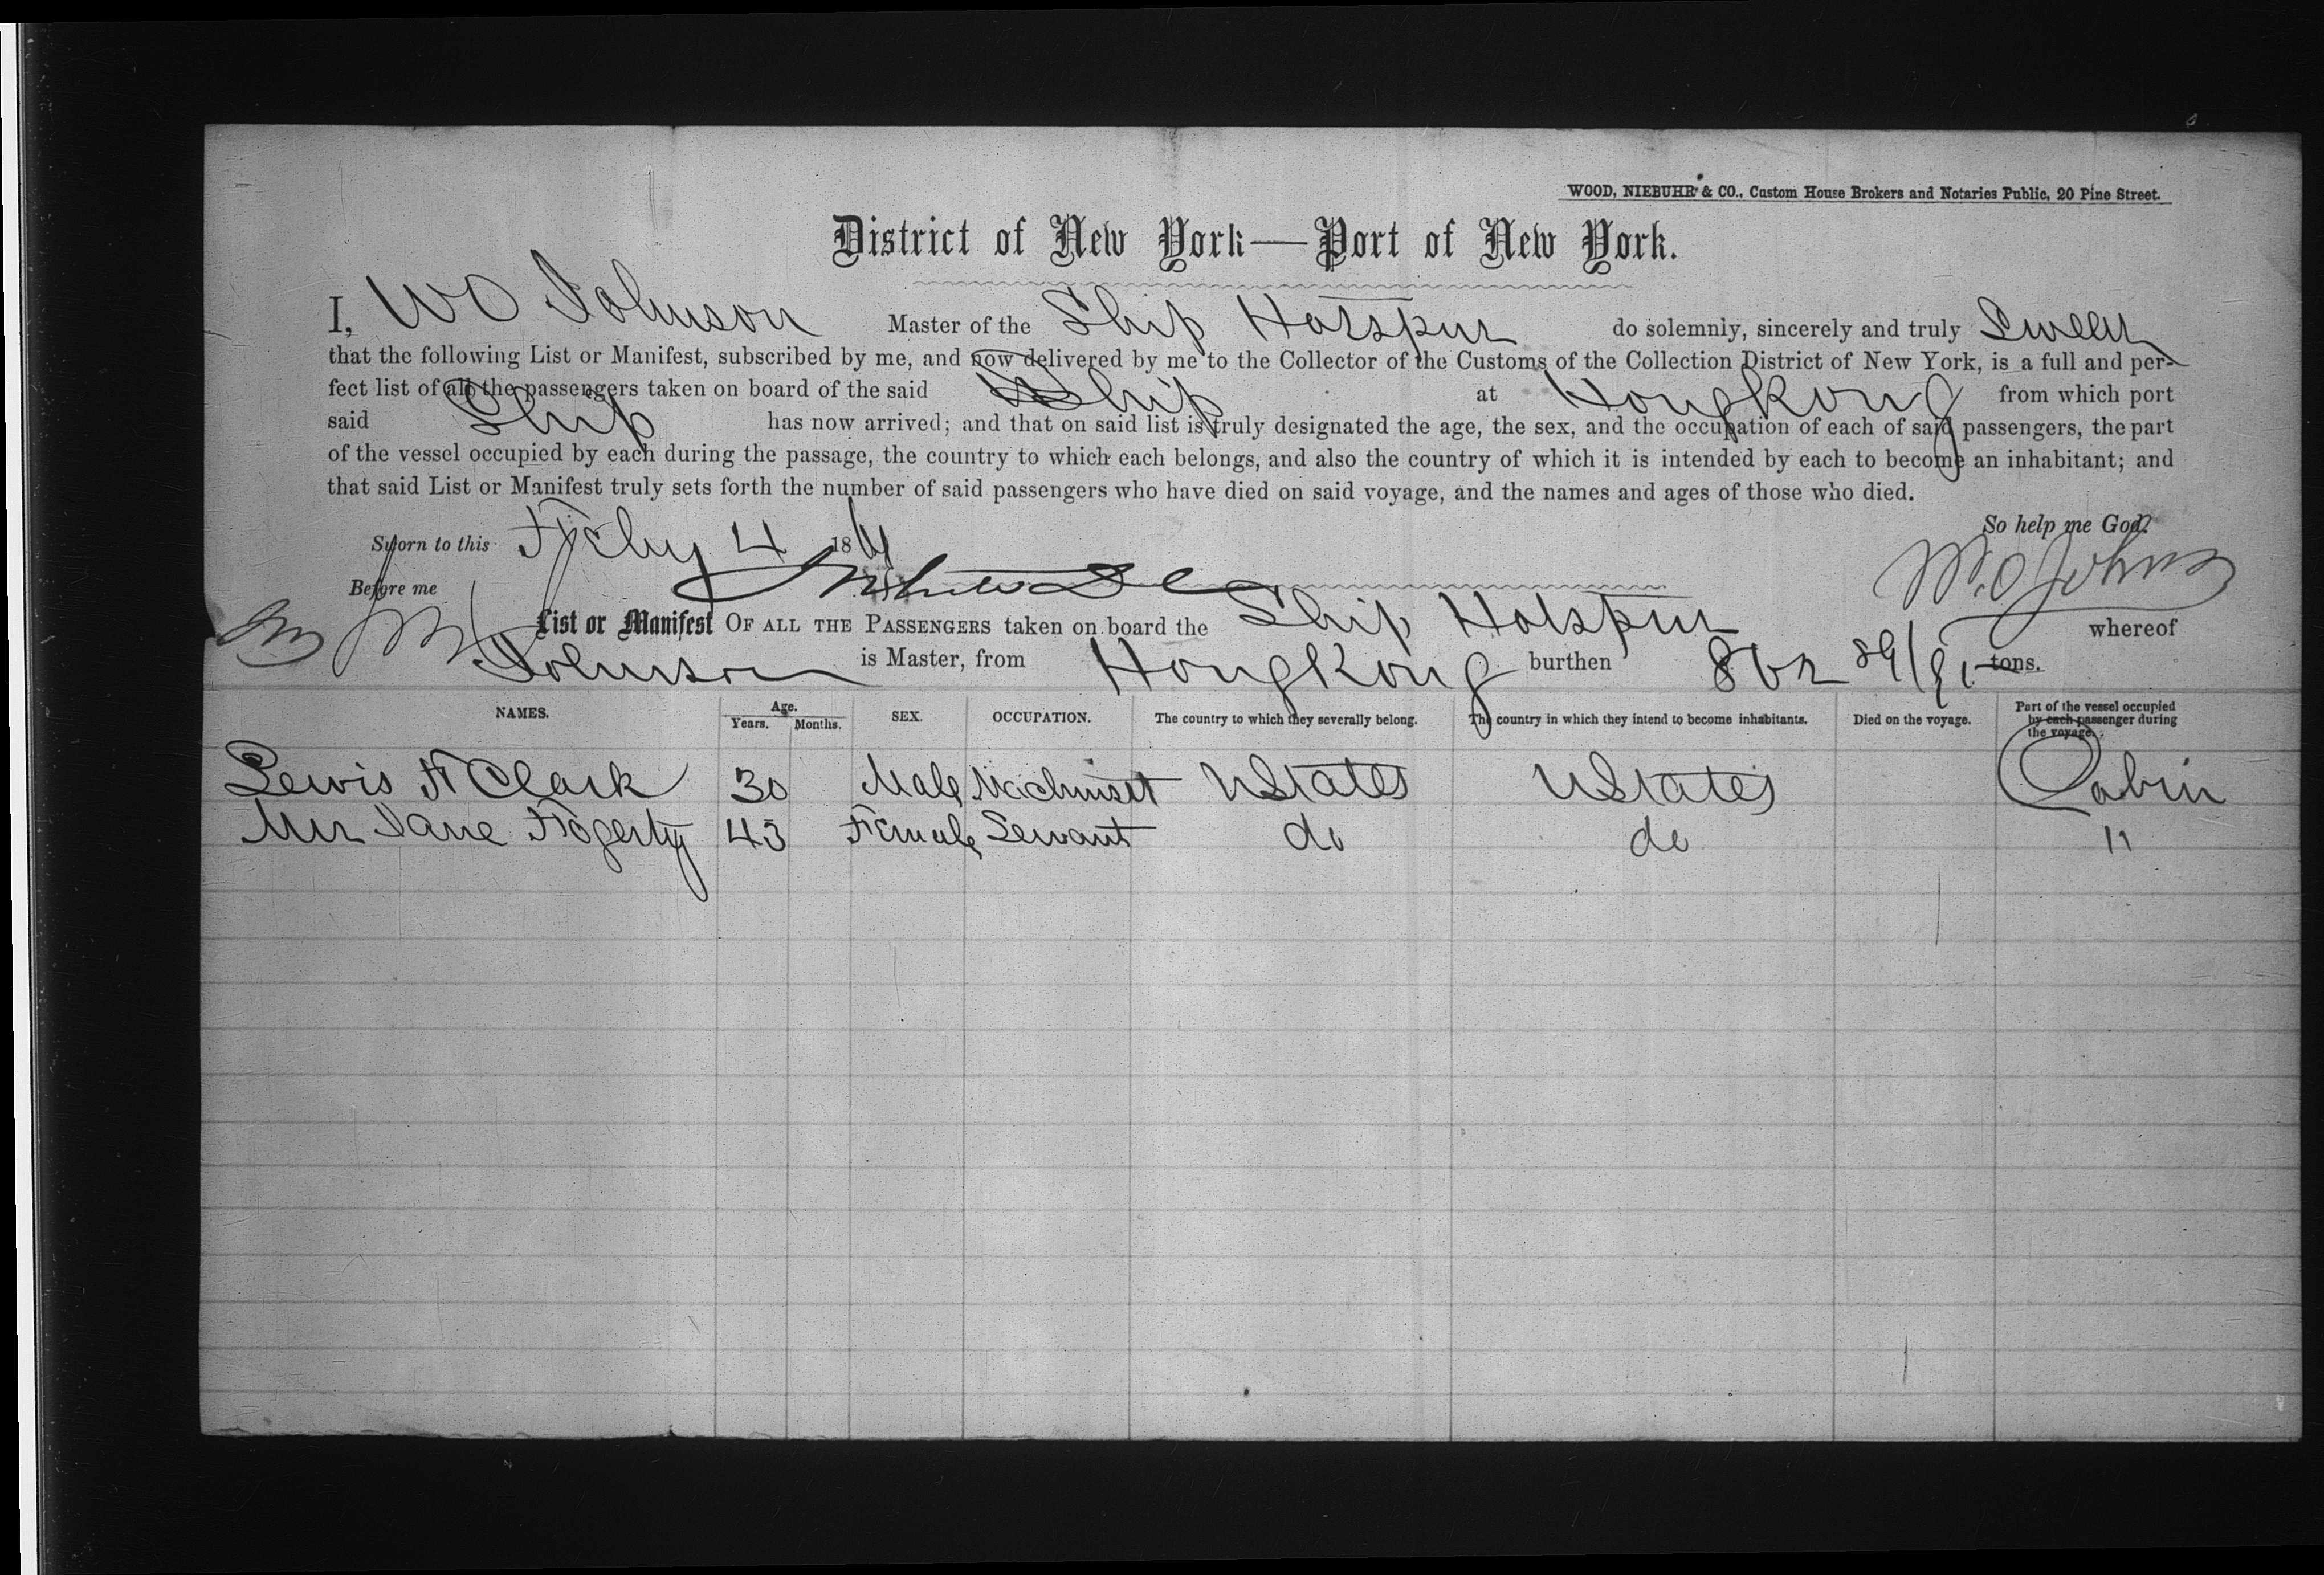 WOOD, NIEBUHR & CO., Custom House Brokers and Notaries Public, 20 Pine Street.
District of New York—Port of New York.
I, W O Johnson Master of the Ship Hotspur do solemnly, sincerely and truly Swear
that the following List or Manifest, subscribed by me, and now delivered by me to the Collector of the Customs of the Collection District of New York, is a full and per-
fect list of all the passengers taken on board of the said Ship at HongKong from which port
said Ship has now arrived; and that on said list is truly designated the age, the sex, and the occupation of each of said passengers, the part
of the vessel occupied by each during the passage, the country to which each belongs, and also the country of which it is intended by each to become an inhabitant; and
that said List or Manifest truly sets forth the number of said passengers who have died on said voyage, and the names and ages of those who died.
So help me God.
Sworn to this Feby 4 18
Before me W. O Johnson
List or Manifest OF ALL THE PASSENGERS taken on board the Ship Hotspur whereof
Johnson is Master, from HongKong burthen 862 tons.
NAMES. Age. Years. Months. SEX. OCCUPATION. The country to which they severally belong. The country in which they intend to become inhabitants. Died on the voyage. Part of the vessel occupied by each passenger during the voyage.
Lewis F Clark 30 Male Machinist UStates UStates Cabin
Mrs Jane Fogerty 43 Female Servant do do "